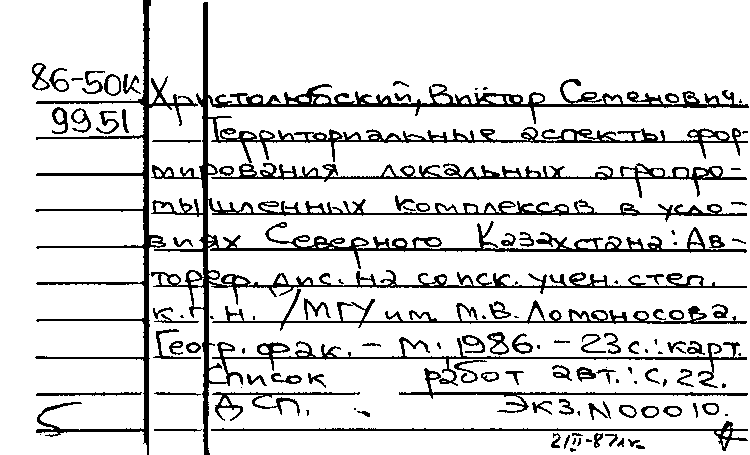 86-50к
9951
Христолюбский, Виктор Семенович.
Территориальные аспекты фор
мирования локальных агропро-
мышленных комплексов в усло-
виях Северного Казахстана: Ав-
тореф. дис. на соиск. учен. степ.
к.г.н. /МГУ им. М.В. Ломоносова.
Геогр. фак. - М., 1986. - 23 с.: карт.
Список работ авт.: С. 22.
ДСП. Экз. N 00010.